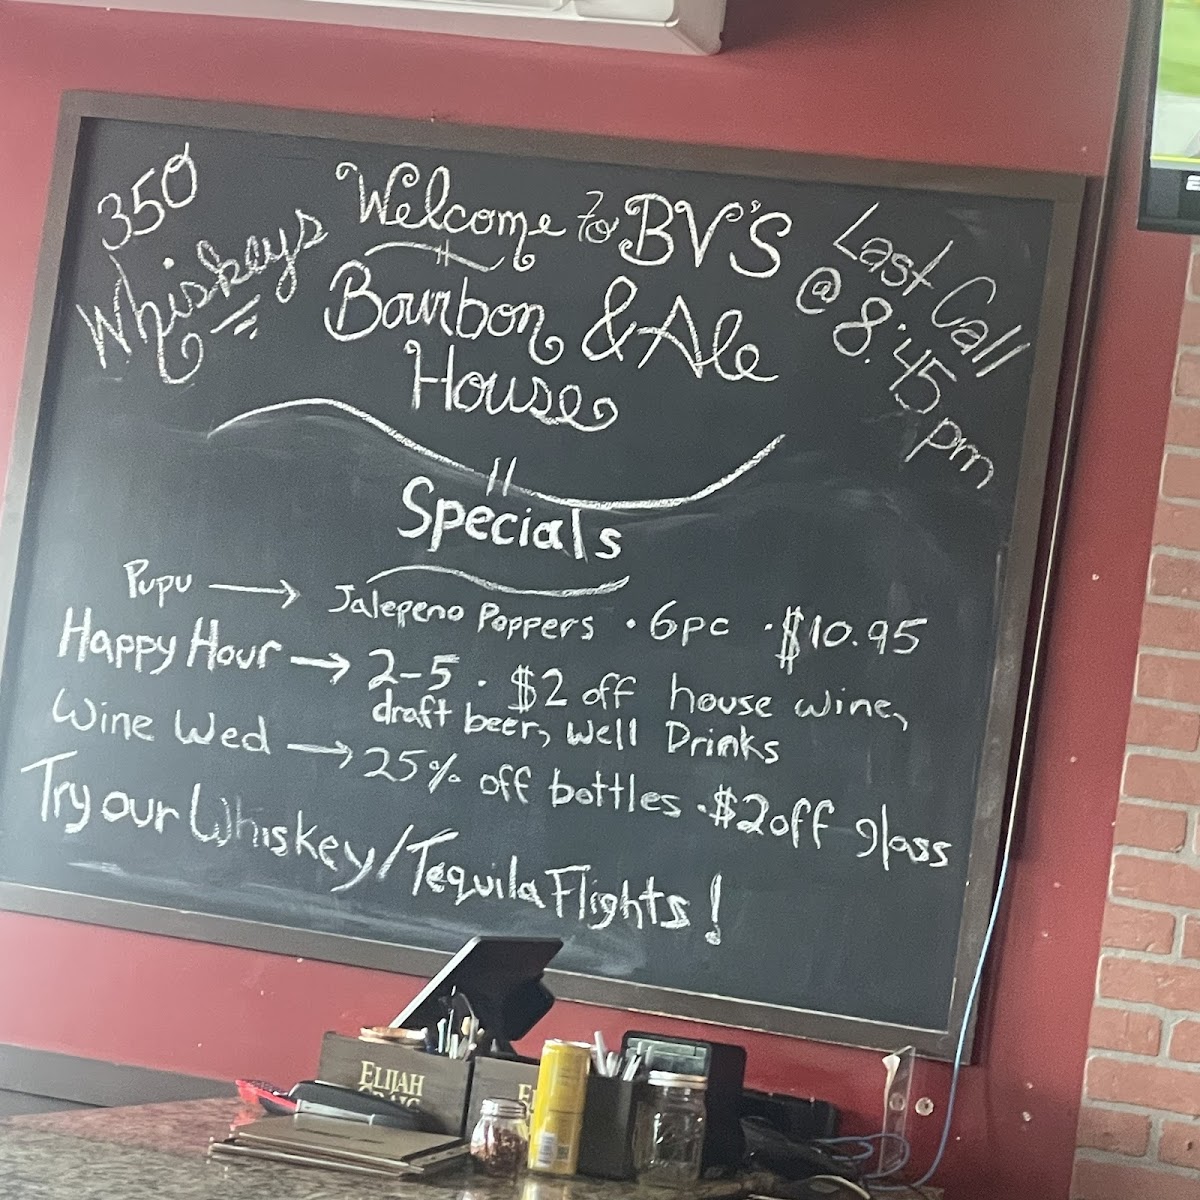 350
Whiskeys
Welcome to BV'S
Bourbon & Ale
House
Last Call
@ 8:45pm
Specials
Pupu → Jalepeno Poppers · 6pc · $10.95
Happy Hour → 2-5 · $2 off house wine,
draft beer, well Drinks
Wine Wed → 25% off bottles · $2 off glass
Try our Whiskey/Tequila Flights!
ELIJAH
CRAIG